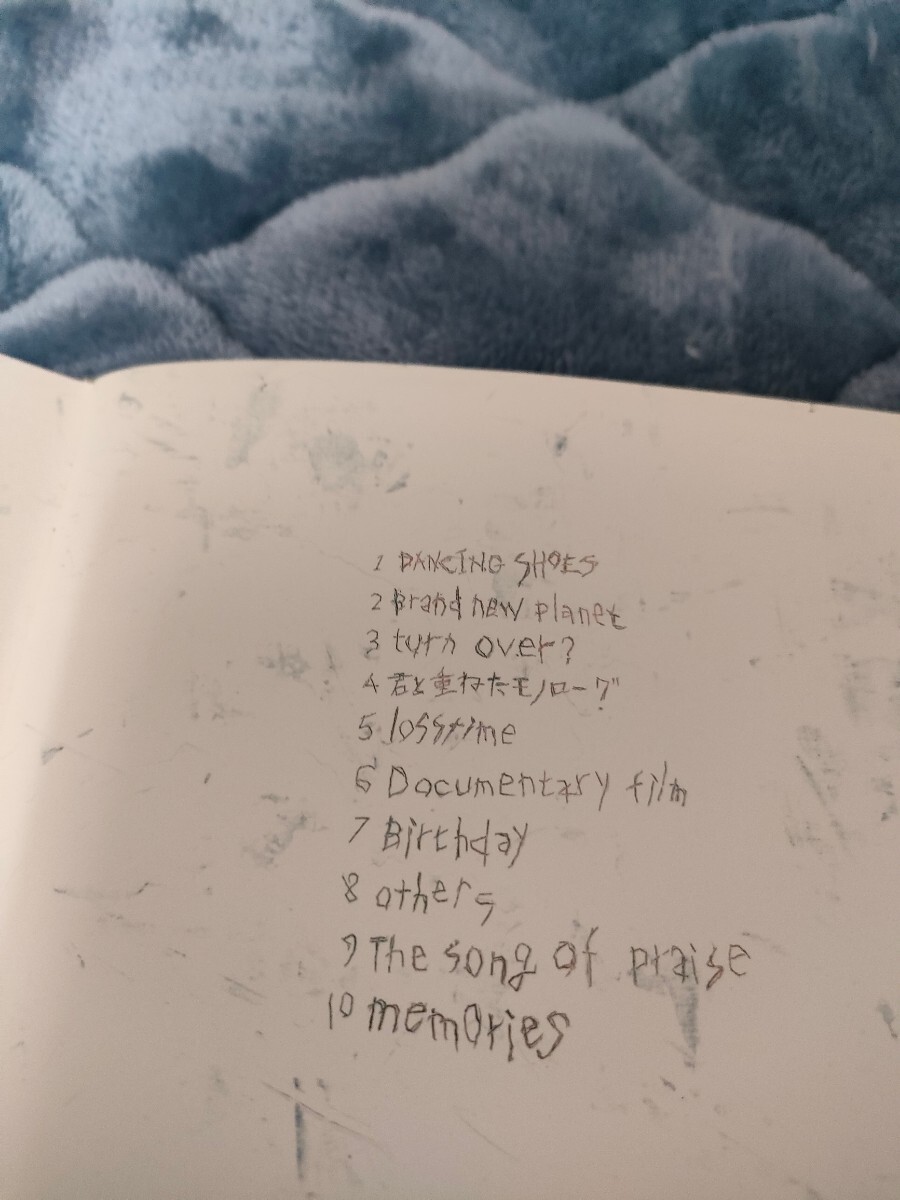 1 DANCING SHOES
2 Brand new planet
3 turn over?
4 君と重ねたモノローグ
5 losstime
6 Documentary film
7 Birthday
8 others
9 The song of praise
10 memories